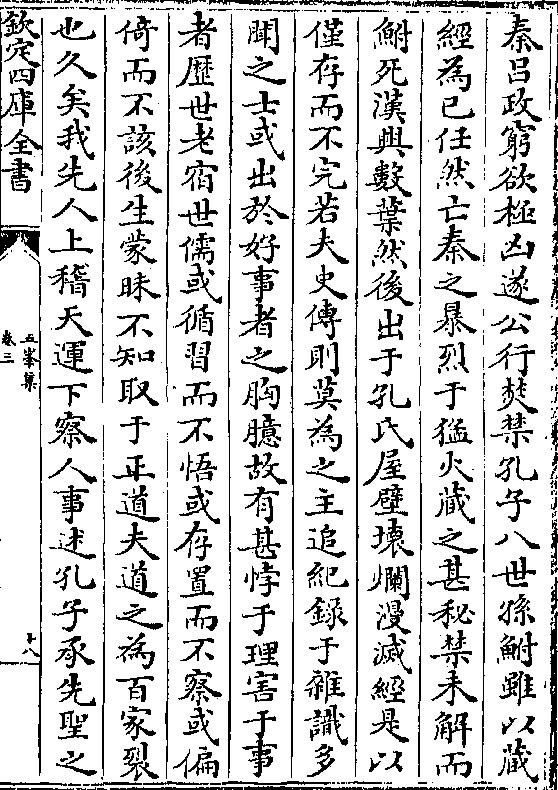 秦吕政窮欲極凶遂公行焚禁孔子八世孫鮒雖以藏
經為已任然亡秦之暴烈于猛火藏之甚秘禁未解而
鮒死漢興數葉然後出于孔氏屋壁壊爛漫滅經是以
僅存而不完若夫史傳則莫為之主追紀録于雜識多
聞之士或出於好事者之胸臆故有甚悖于理害于事
者歴世老宿世儒或循習而不悟或存置而不察或偏
倚而不該後生蒙昧不知取于正道夫道之為百家裂
也久矣我先人上稽天運下察人事述孔子承先聖之
欽定四庫全書
五峯集
卷三
十八